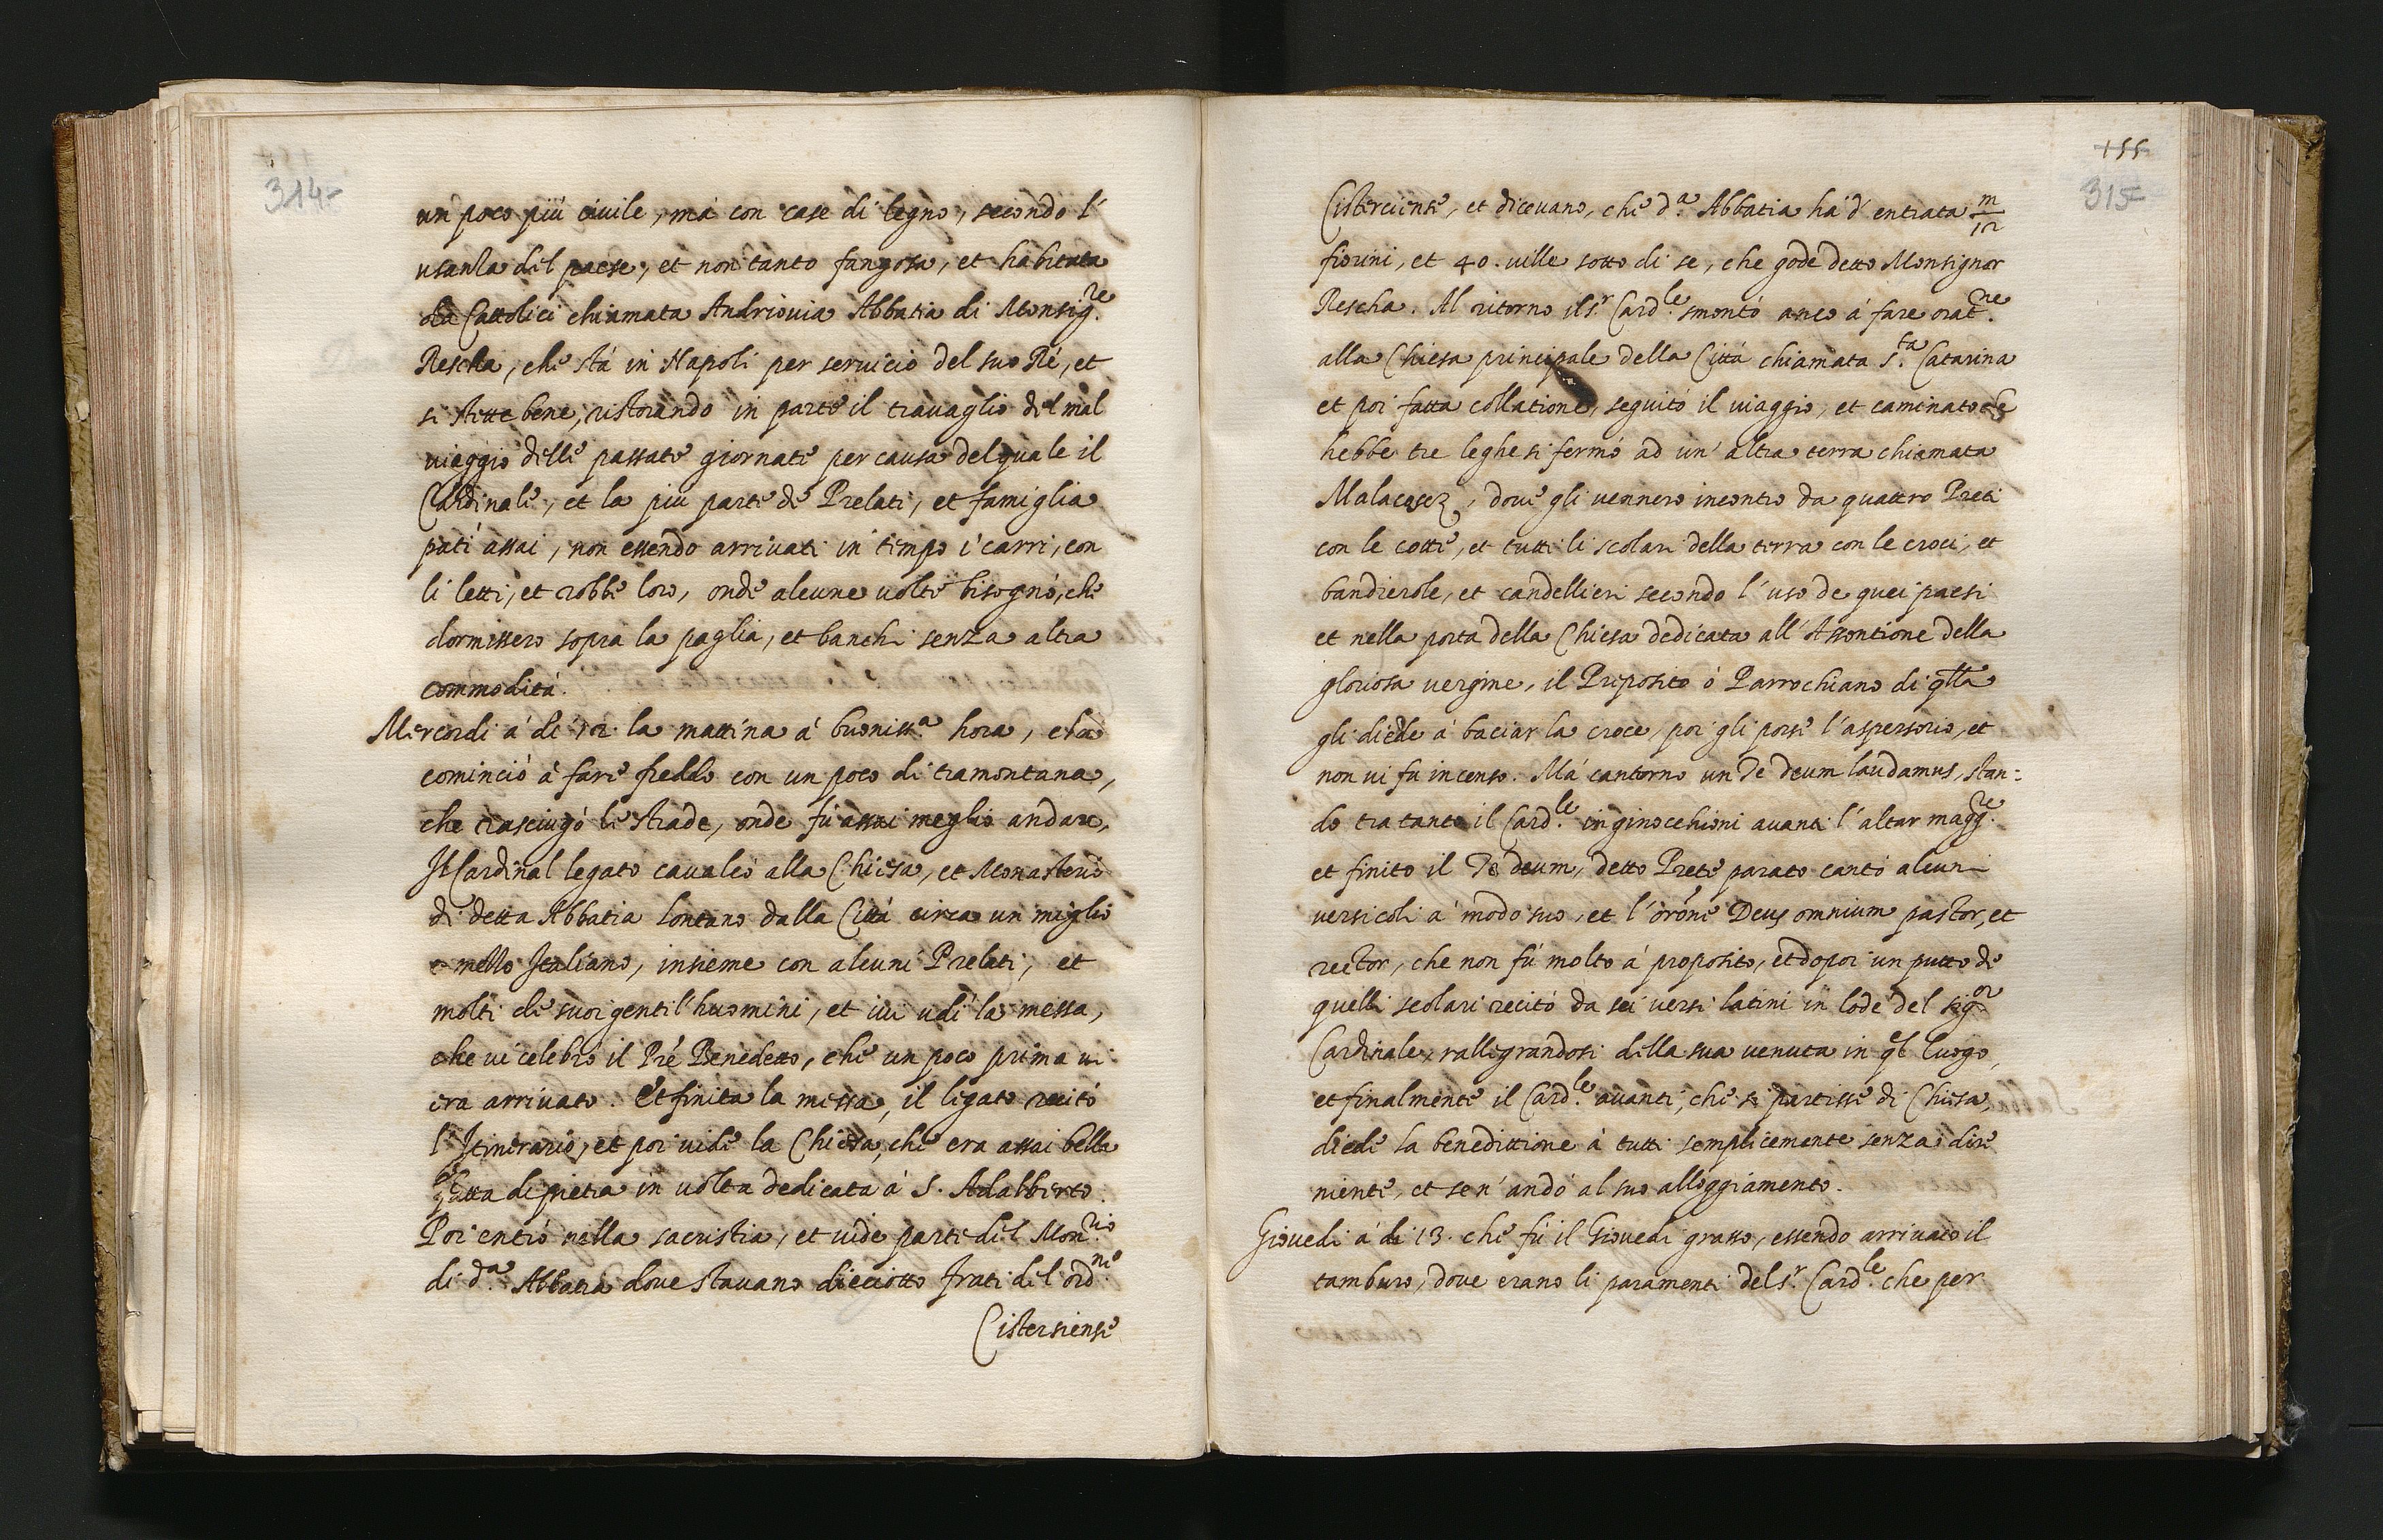 314
un poco più ciuile, mà con case di legno, secondo l'
usanza del paese, et non tanto fangosa, et habitata
da Cattolici chiamata Andriouia Abbatia di Monsig.re
Rescha, che stà in Napoli per seruicio del suo Rè, et
si stette bene, ristorando in parte il trauaglio del mal
uiaggio delle passate giornate per causa del quale il
Cardinale, et la più parte de Prelati, et famiglia
patì assai, non essendo arriuati in tempo i carri, con
li letti, et robbe loro, onde alcune uolte bisognò, che
dormissero sopra la paglia, et banchi senza altra
commodità.
Mercordi à di 12. la mattina à buoniss.a hora,
cominciò à fare freddo con un poco di tramontana,
che rasciugò le strade, onde fù assai meglio andare,
Il Cardinal legato caualcò alla Chiesa, et Monasterio
di detta Abbatia lontano dalla Città circa un miglio
e mezzo Italiano, insieme con alcuni Prelati, et
molti de suoi gentil'huomini, et iui udì la messa,
che ui celebrò il Prè Benedetto, che un poco prima ui
era arriuato. Et finita la messa, il legato recitò
l'Itinerario, et poi uide la Chiesa, che era assai bella
tutta di pietra in uolta dedicata à S. Adalberto.
Poi entrò nella sacristia, et uide parte del Mon.rio
di d.a Abbatia doue stauano dieciotto frati del ord.ne
Cistersiense
155
315
Cisterciense, et diceuano, che d.a Abbatia hà d'entrata m/12
fiorini, et 40. uille sotto di se, che gode detto Monsignor
Rescha. Al ritorno il s.r Card.le smontò anco à fare orat.ne
alla Chiesa principale della Città chiamata S.ta Catarina
et poi fatta collatione, seguitò il uiaggio, et caminato che
hebbe tre leghe si fermò ad un'altra terra chiamata
Malacosez, doue gli uennero incontro da quattro Preti
con le cotte, et tutti li scolari della terra con le croci, et
bandierole, et candellieri secondo l'uso de quei paesi
et nella porta della Chiesa dedicata all'Assontione della
gloriosa uergine, il Preposito ò Parrochiano di qlla
gli diede à baciar la croce, poi gli porse l'aspersorio, et
non ui fu incenso. Mà cantorno un Te Deum laudamus, stan:
do tra tanto il Card.le inginocchioni auanti l'altar magg.re
et finito il Te deum, detto Prete parato cantò alcuni
uersicoli à modo suo, et l'orone Deus omnium pastor, et
rector, che non fù molto à proposito, et dopoi un putto de
quelli scolari recitò da sei uersi latini in lode del sig.or
Cardinale, rallegrandosi della sua uenuta in ql luogo,
et finalmente il Card.le auanti, che si partisse di Chiesa,
diede la benedittione à tutti semplicemente senza dire
niente, et se n'andò al suo alloggiamento.
Giouedi à di 13. che fù il Giouedi grasso, essendo arriuato il
tamburo, doue erano li paramenti del s.r Card.le che per